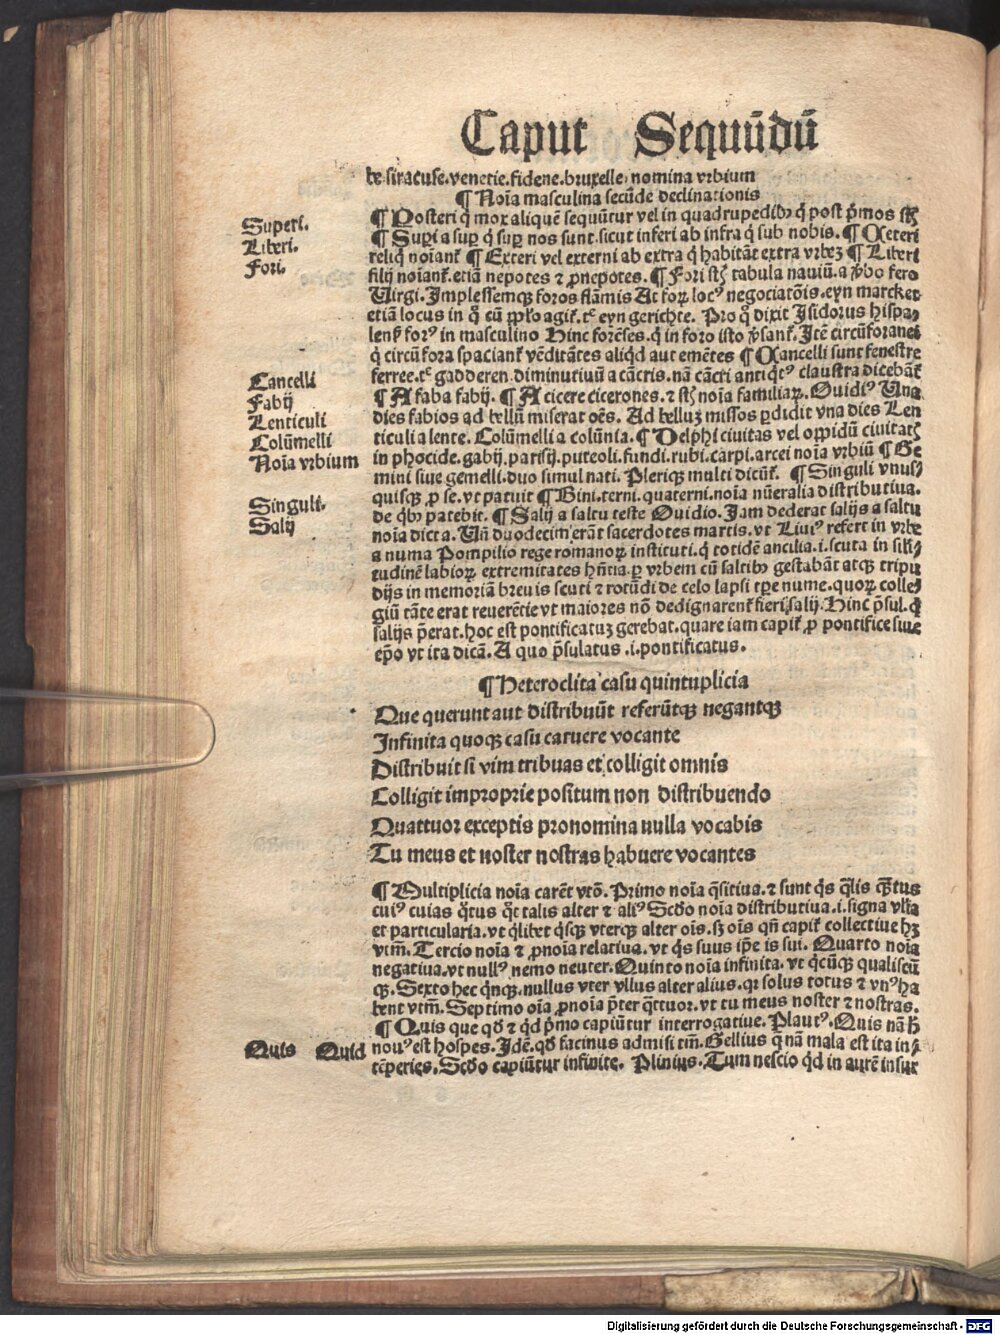 Caput Sequūdū
be siracuse.venetie.fidene.bruxelle.nomina vrbium
¶ Noīa masculina secūde declinationis
¶ Posteri q mox aliquē sequūtur vel in quadrupedibꝰ q̄ post p̄mos
Superi.
¶ Supi a sup q̄ sup nos sunt.sicut inferi ab infra q̄ sub nobis. ¶ Ceteri
Liberi.
reliq̄ noīant ¶ Exteri vel externi ab extra q̄ habitāt extra vrbeꝫ ¶ Liberi
Fori.
filij noīant.etiā nepotes ⁊ ꝓnepotes. ¶ Fori tabula nauiū.a ꝟbo fero
Virgi.Implessemqꝫ foros flāmis At foꝝ locꝰ negociatōis.eyn marcket
etiā locus in q̄ cū agit. eyn gerichte. Pro q̄ dixit Isidorus hispa⸗
lens forꝰ in masculino Hinc forēses.q̄ in foro isto Itē circūforanei
q̄ circū fora spaciant vēditātes aliqd aut emētes ¶ Cancelli sunt fenestre
Cancelli
ferree. gadderen.diminutiuū a cācris.nā cācri antiqtꝰ claustra dicebāt
Fabij
¶ A faba fabij. ¶ A cicere cicerones. ⁊ noīa familiaꝝ. Ouidiꝰ Una
Lenticuli
dies fabios ad bellū miserat oēs. Ad belluꝫ missos ꝑdidit vna dies Len
Colūmelli
ticuli a lente. Colūmelli a colūnia. ¶ Delphi ciuitas vel oppidū
Noīa vrbium
in phocide.gabij.parisij.puteoli.fundi.rubi.carpi.arcei noīa vrbiū ¶ Ge
mini siue gemelli.duo simul nati. Pleriqꝫ multi dicūt. ¶ Singuli vnus⸗
Singuli.
quisqꝫ ꝓ se.vt patuit ¶ Bini.terni.quaterni.noīa nūeralia distributiua.
Salij
de qbꝰ patebit. ¶ Salij a saltu teste Ouidio. Jam dederat salijs a saltu
noīa dicta. Un̄ duodecim erāt sacerdotes martis.vt Liuiꝰ refert in vrbe
a numa Pompilio rege romanoꝝ instituti.q̄ totidē ancilia.i.scuta in
tudinē labioꝝ extremitates hn̄tia.ꝑ vrbem cū saltibꝰ gestabāt atqꝫ tripu
dijs in memoriā breuis scuti ⁊ rotūdi de celo lapsi nume.quoꝝ colle⸗
giū tāte erat reuerētie vt maiores nō dedignarent fieri salij.Hinc p̄sul.q̄
salijs p̄erat.hoc est pontificatuꝫ gerebat.quare iam capit ꝓ pontifice siue
ep̄o vt ita dicā. A quo p̄sulatus.i.pontificatus.
¶ Heteroclita casu quintuplicia
Que querunt aut distribuūt referūtqꝫ negantqꝫ
Infinita quoqꝫ casu caruere vocante
Distribuit si vim tribuas et colligit omnis
Colligit improprie positum non distribuendo
Quattuor exceptis pronomina nulla vocabis
Tu meus et noster nostras habuere vocantes
¶ Multiplicia noīa carēt vtō. Primo noīa q̄sitiua.⁊ sunt q̄s q̄lis q̄ntus
cuiꝰ cuias q̄tus talis alter ⁊ aliꝰ Scd̄o noīa distributiua.i.signa vl̄ia
et particularia.vt q̄libet q̄sqꝫ vterqꝫ alter oīs.sꝫ oīs qn̄ capit collectiue hꝫ
vtm̄. Tercio noīa ⁊ ꝓnoīa relatiua.vt q̄s suus ip̄e is sui. Quarto noīa
negatiua.vt nullꝰ nemo neuter.Quinto noīa infinita.vt q̄cūqꝫ qualiscū
qꝫ. Sexto hec q̄nqꝫ.nullus vter vllus alter alius.qꝛ solus totus ⁊ vnꝰ ha
bent vtm̄. Septimo oīa ꝓnoīa p̄ter q̄ttuor.vt tu meus noster ⁊ nostras.
¶ Quis que qd̄ ⁊ q̄d p̄mo capiūtur interrogatiue. Plautꝰ.Quis nā h̄
Quis Quid
nouꝰ est hospes.Idē.qd̄ facinus admisi tm̄.Gellius q̄ nā mala est ita in⸗
tēperies.Scd̄o capiūtur infinite. Plinius.Tum nescio q̄d in aurē insur
Digitalisierung gefördert durch die Deutsche Forschungsgemeinschaft - DFG